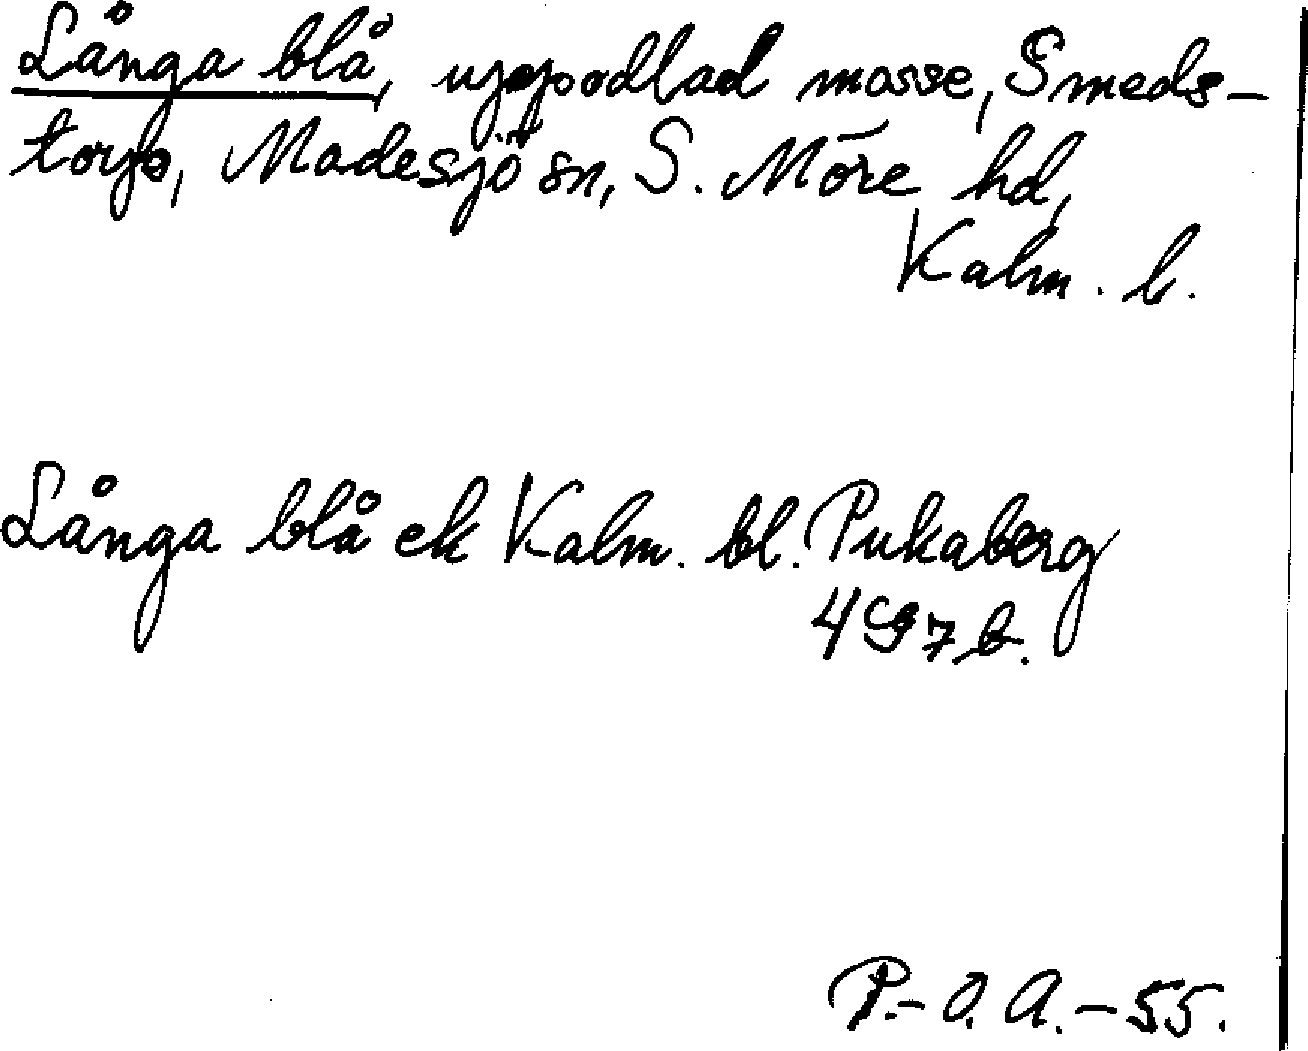 Långa blå, uppodlad mosse, Smeds-
torp, Madesjö sn, S. Möre hd,
Kalm. l.
Långa blå ek Kalm. bl. Pukaberg
4 S 7 b.
P.-O. A. - 55.